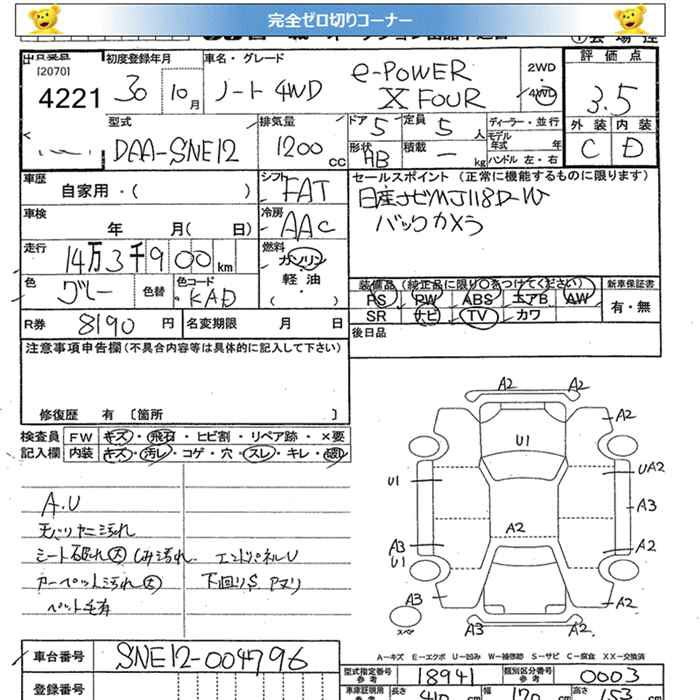 完全ゼロ切りコーナー
[2070]
4221
初度登録年月
30 10月
車名・グレード
ノート 4WD
e-POWER
X FOUR
2WD
・
4WD
評価点
3.5
外装 内装
C D
型式
DAA-SNE12
排気量
1200cc
ドア 5
定員 5人
形状 HB
積載 — kg
ディーラー・並行
モデル年式 年
ハンドル 左・右
車歴
自家用・( )
シフト FAT
冷房 AAC
セールスポイント (正常に機能するものに限ります)
日産ナビMJ118D-W
バックカメラ
車検
年 月( 日)
走行
14万3千900km
燃料
ガソリン
・
軽油
( )
色
グレー
色替
色コード
KAD
装備品(純正品に限り○をつけてください)
PS PW ABS エアB AW
SR ナビ TV カワ
新車保証書
有・無
R券 8190円
名変期限 月 日
後日品
注意事項申告欄(不具合内容等は具体的に記入して下さい)
修復歴 有 [箇所 ]
検査員記入欄
FW キズ・飛石・ヒビ割・リペア跡・×要
内装 キズ・汚レ・コゲ・穴・スレ・キレ・破レ
A.U
天バリヤニ汚れ
シート破れ大 しみ汚れ エンドパネルU
カーペット汚れ大 下回りS アヌリ
ペット毛有
A2 A2
A2
U1
U1 UA2
A3
A2
A3 A2
U1
A3 A2
A3 A2
スペア
A-キズ E-エクボ U-凹み W-補修跡 S-サビ C-腐食 XX-交換済
車台番号 SNE12-004796
型式指定番号 参考 18941
類別区分番号 参考 0003
登録番号
車庫証明用 参考
長さ 410cm
幅 170cm
高さ 153cm